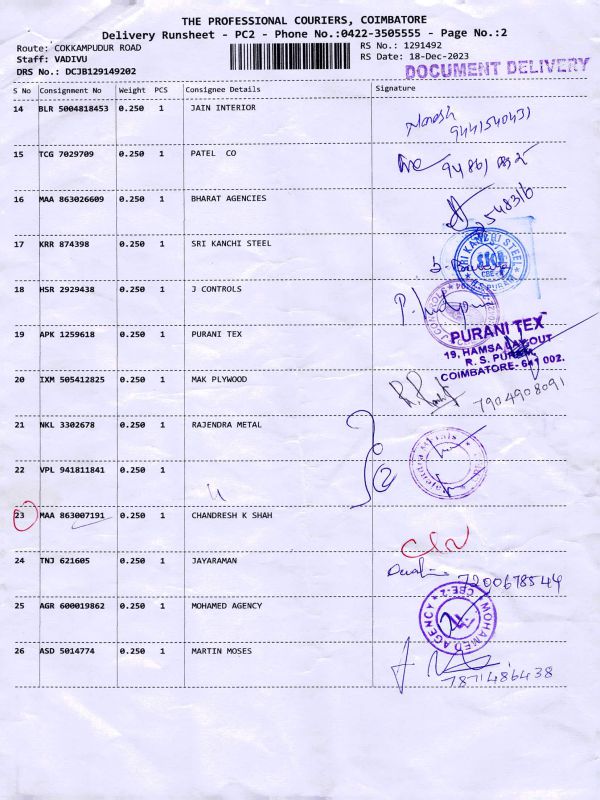 THE PROFESSIONAL COURIERS, COIMBATORE
Delivery Runsheet - PC2 - Phone No.:0422-3505555 - Page No.:2
Route: COKKAMPUDUR ROAD
Staff: VADIVU
DRS No.: DCJB129149202
RS No.: 1291492
RS Date: 18-Dec-2023
DOCUMENT DELIVERY
S No Consignment No Weight PCS Consignee Details Signature
14 BLR 5004818453 0.250 1 JAIN INTERIOR
9441540431
15 TCG 7029709 0.250 1 PATEL CO
16 MAA 863026609 0.250 1 BHARAT AGENCIES
17 KRR 874398 0.250 1 SRI KANCHI STEEL
SRI KANCHI STEEL
R.S. PURAM
18 HSR 2929438 0.250 1 J CONTROLS
J CONTROLS
19 APK 1259618 0.250 1 PURANI TEX
PURANI TEX
19, HAMSA LAYOUT
R. S. PURAM,
COIMBATORE- 641 002.
20 IXM 505412825 0.250 1 MAK PLYWOOD
7904908091
21 NKL 3302678 0.250 1 RAJENDRA METAL
22 VPL 941811841 0.250 1
2
23 MAA 863007191 0.250 1 CHANDRESH K SHAH
24 TNJ 621605 0.250 1 JAYARAMAN
7200678544
25 AGR 600019862 0.250 1 MOHAMED AGENCY
MOHAMED AGENCY
CBE-2
26 ASD 5014774 0.250 1 MARTIN MOSES
7871486438